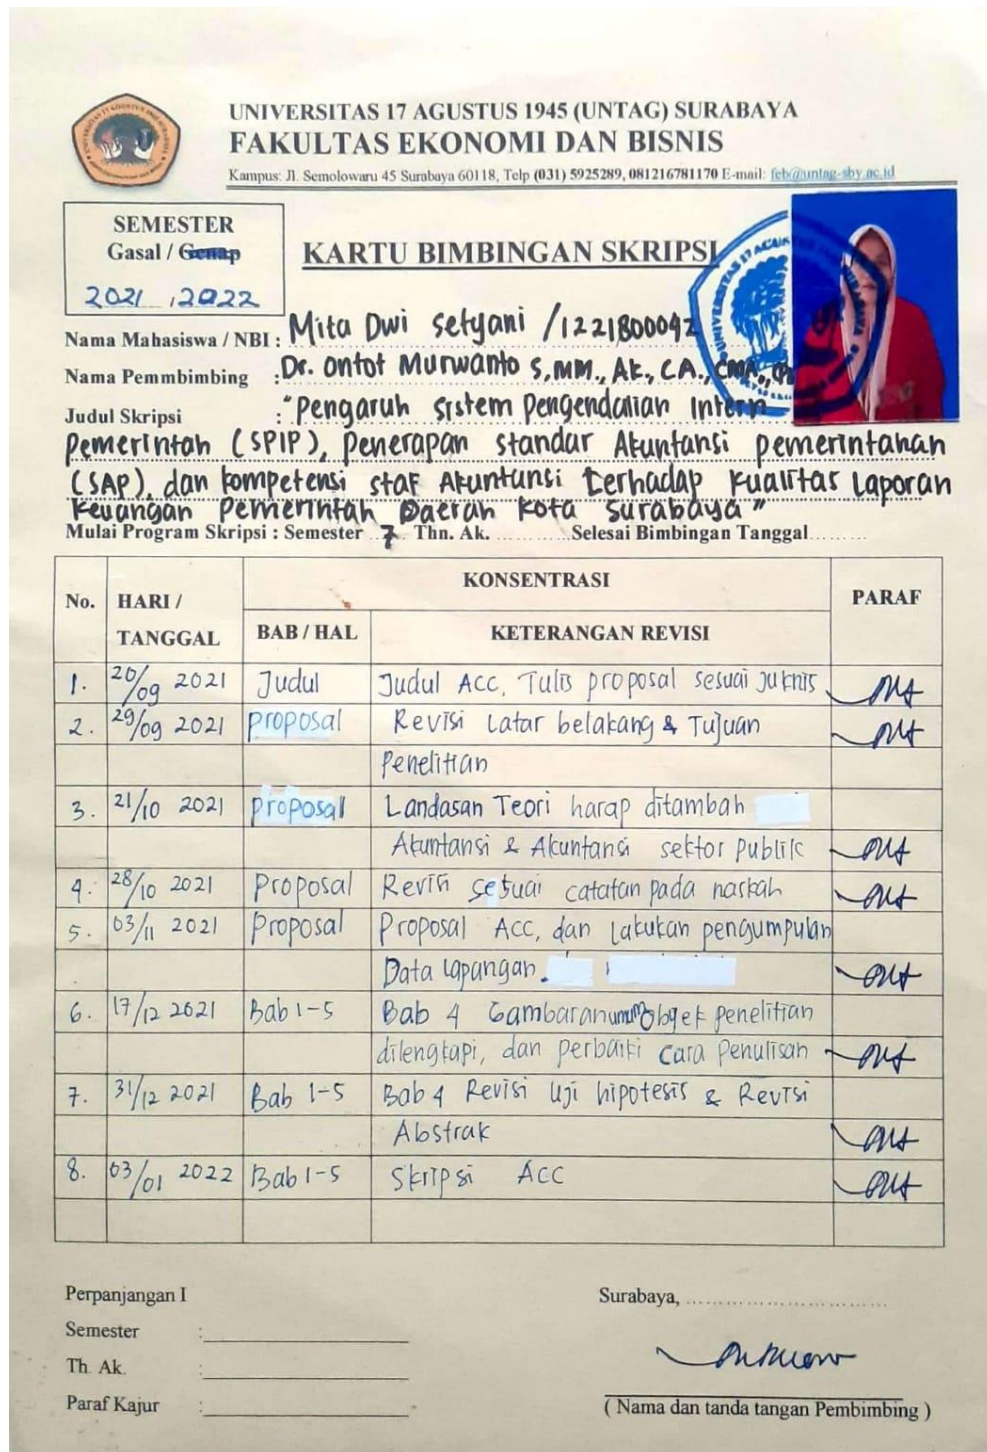 UNIVERSITAS 17 AGUSTUS 1945 (UNTAG) SURABAYA
FAKULTAS EKONOMI DAN BISNIS
Kampus: Jl. Semolowaru 45 Surabaya 60118, Telp (031) 5925289, 081216781170 E-mail: feb@untag-sby.ac.id
SEMESTER
Gasal / Genap
2021 , 2022
KARTU BIMBINGAN SKRIPSI
Nama Mahasiswa / NBI : Mita Dwi Setyani / 1221800042
Nama Pemmbimbing : Dr. Ontot Murwanto S, MM., Ak., CA., CMA.,
Judul Skripsi : "Pengaruh sistem Pengendalian Intern
Pemerintah (SPIP), Penerapan standar Akuntansi pemerintahan
(SAP), dan kompetensi staf Akuntansi Terhadap Kualitas Laporan
Keuangan Pemerintah Daerah Kota Surabaya"
Mulai Program Skripsi : Semester 7 Thn. Ak. ............Selesai Bimbingan Tanggal.........
No. HARI / TANGGAL KONSENTRASI PARAF
BAB / HAL KETERANGAN REVISI
1. 20/09 2021 Judul Judul Acc, Tulis proposal sesuai juknis
2. 29/09 2021 proposal Revisi Latar belakang & Tujuan
Penelitian
3. 21/10 2021 proposal Landasan Teori harap ditambah
Akuntansi & Akuntansi sektor Publik
4. 28/10 2021 Proposal Revisi sesuai catatan pada naskah
5. 03/11 2021 Proposal Proposal Acc, dan Lakukan pengumpulan
Data lapangan.
6. 17/12 2021 Bab 1-5 Bab 4 Gambaran umum Obyek penelitian
dilengkapi, dan perbaiki cara Penulisan
7. 31/12 2021 Bab 1-5 Bab 4 Revisi Uji hipotesis & Revisi
Abstrak
8. 03/01 2022 Bab 1-5 Skripsi Acc
Perpanjangan I
Semester :
Th. Ak. :
Paraf Kajur :
Surabaya, ................................
( Nama dan tanda tangan Pembimbing )